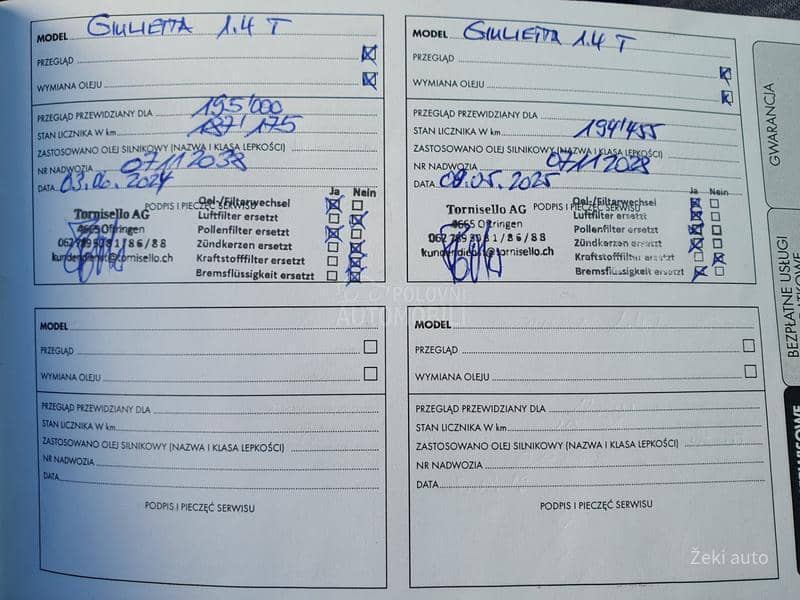 MODEL GIULIETTA 1.4 T
PRZEGLĄD
WYMIANA OLEJU
PRZEGLĄD PRZEWIDZIANY DLA 195'000
STAN LICZNIKA W km 187'175
ZASTOSOWANO OLEJ SILNIKOWY (NAZWA I KLASA LEPKOŚCI)
NR NADWOZIA 07112038
DATA 03.06.2024
PODPIS I PIECZĘĆ SERWISU
Ja Nein
Tornisello AG
4665 Oftringen
kundendienst@tornisello.ch
Oel-/Filterwechsel
Luftfilter ersetzt
Pollenfilter ersetzt
Zündkerzen ersetzt
Kraftstofffilter ersetzt
Bremsflüssigkeit ersetzt
MODEL GIULIETTA 1.4 T
PRZEGLĄD
WYMIANA OLEJU
PRZEGLĄD PRZEWIDZIANY DLA
STAN LICZNIKA W km 194'455
ZASTOSOWANO OLEJ SILNIKOWY (NAZWA I KLASA LEPKOŚCI)
NR NADWOZIA 07112028
DATA 09.05.2025
PODPIS I PIECZĘĆ SERWISU
Ja Nein
Tornisello AG
4665 Oftringen
kundendienst@tornisello.ch
Oel-/Filterwechsel
Luftfilter ersetzt
Pollenfilter ersetzt
Zündkerzen ersetzt
Kraftstofffilter ersetzt
Bremsflüssigkeit ersetzt
POLOVNI
AUTOMOBILI
MODEL
PRZEGLĄD
WYMIANA OLEJU
PRZEGLĄD PRZEWIDZIANY DLA
STAN LICZNIKA W km
ZASTOSOWANO OLEJ SILNIKOWY (NAZWA I KLASA LEPKOŚCI)
NR NADWOZIA
DATA
PODPIS I PIECZĘĆ SERWISU
MODEL
PRZEGLĄD
WYMIANA OLEJU
PRZEGLĄD PRZEWIDZIANY DLA
STAN LICZNIKA W km
ZASTOSOWANO OLEJ SILNIKOWY (NAZWA I KLASA LEPKOŚCI)
NR NADWOZIA
DATA
PODPIS I PIECZĘĆ SERWISU
GWARANCJA
BEZPŁATNE USŁUGI
Žeki auto